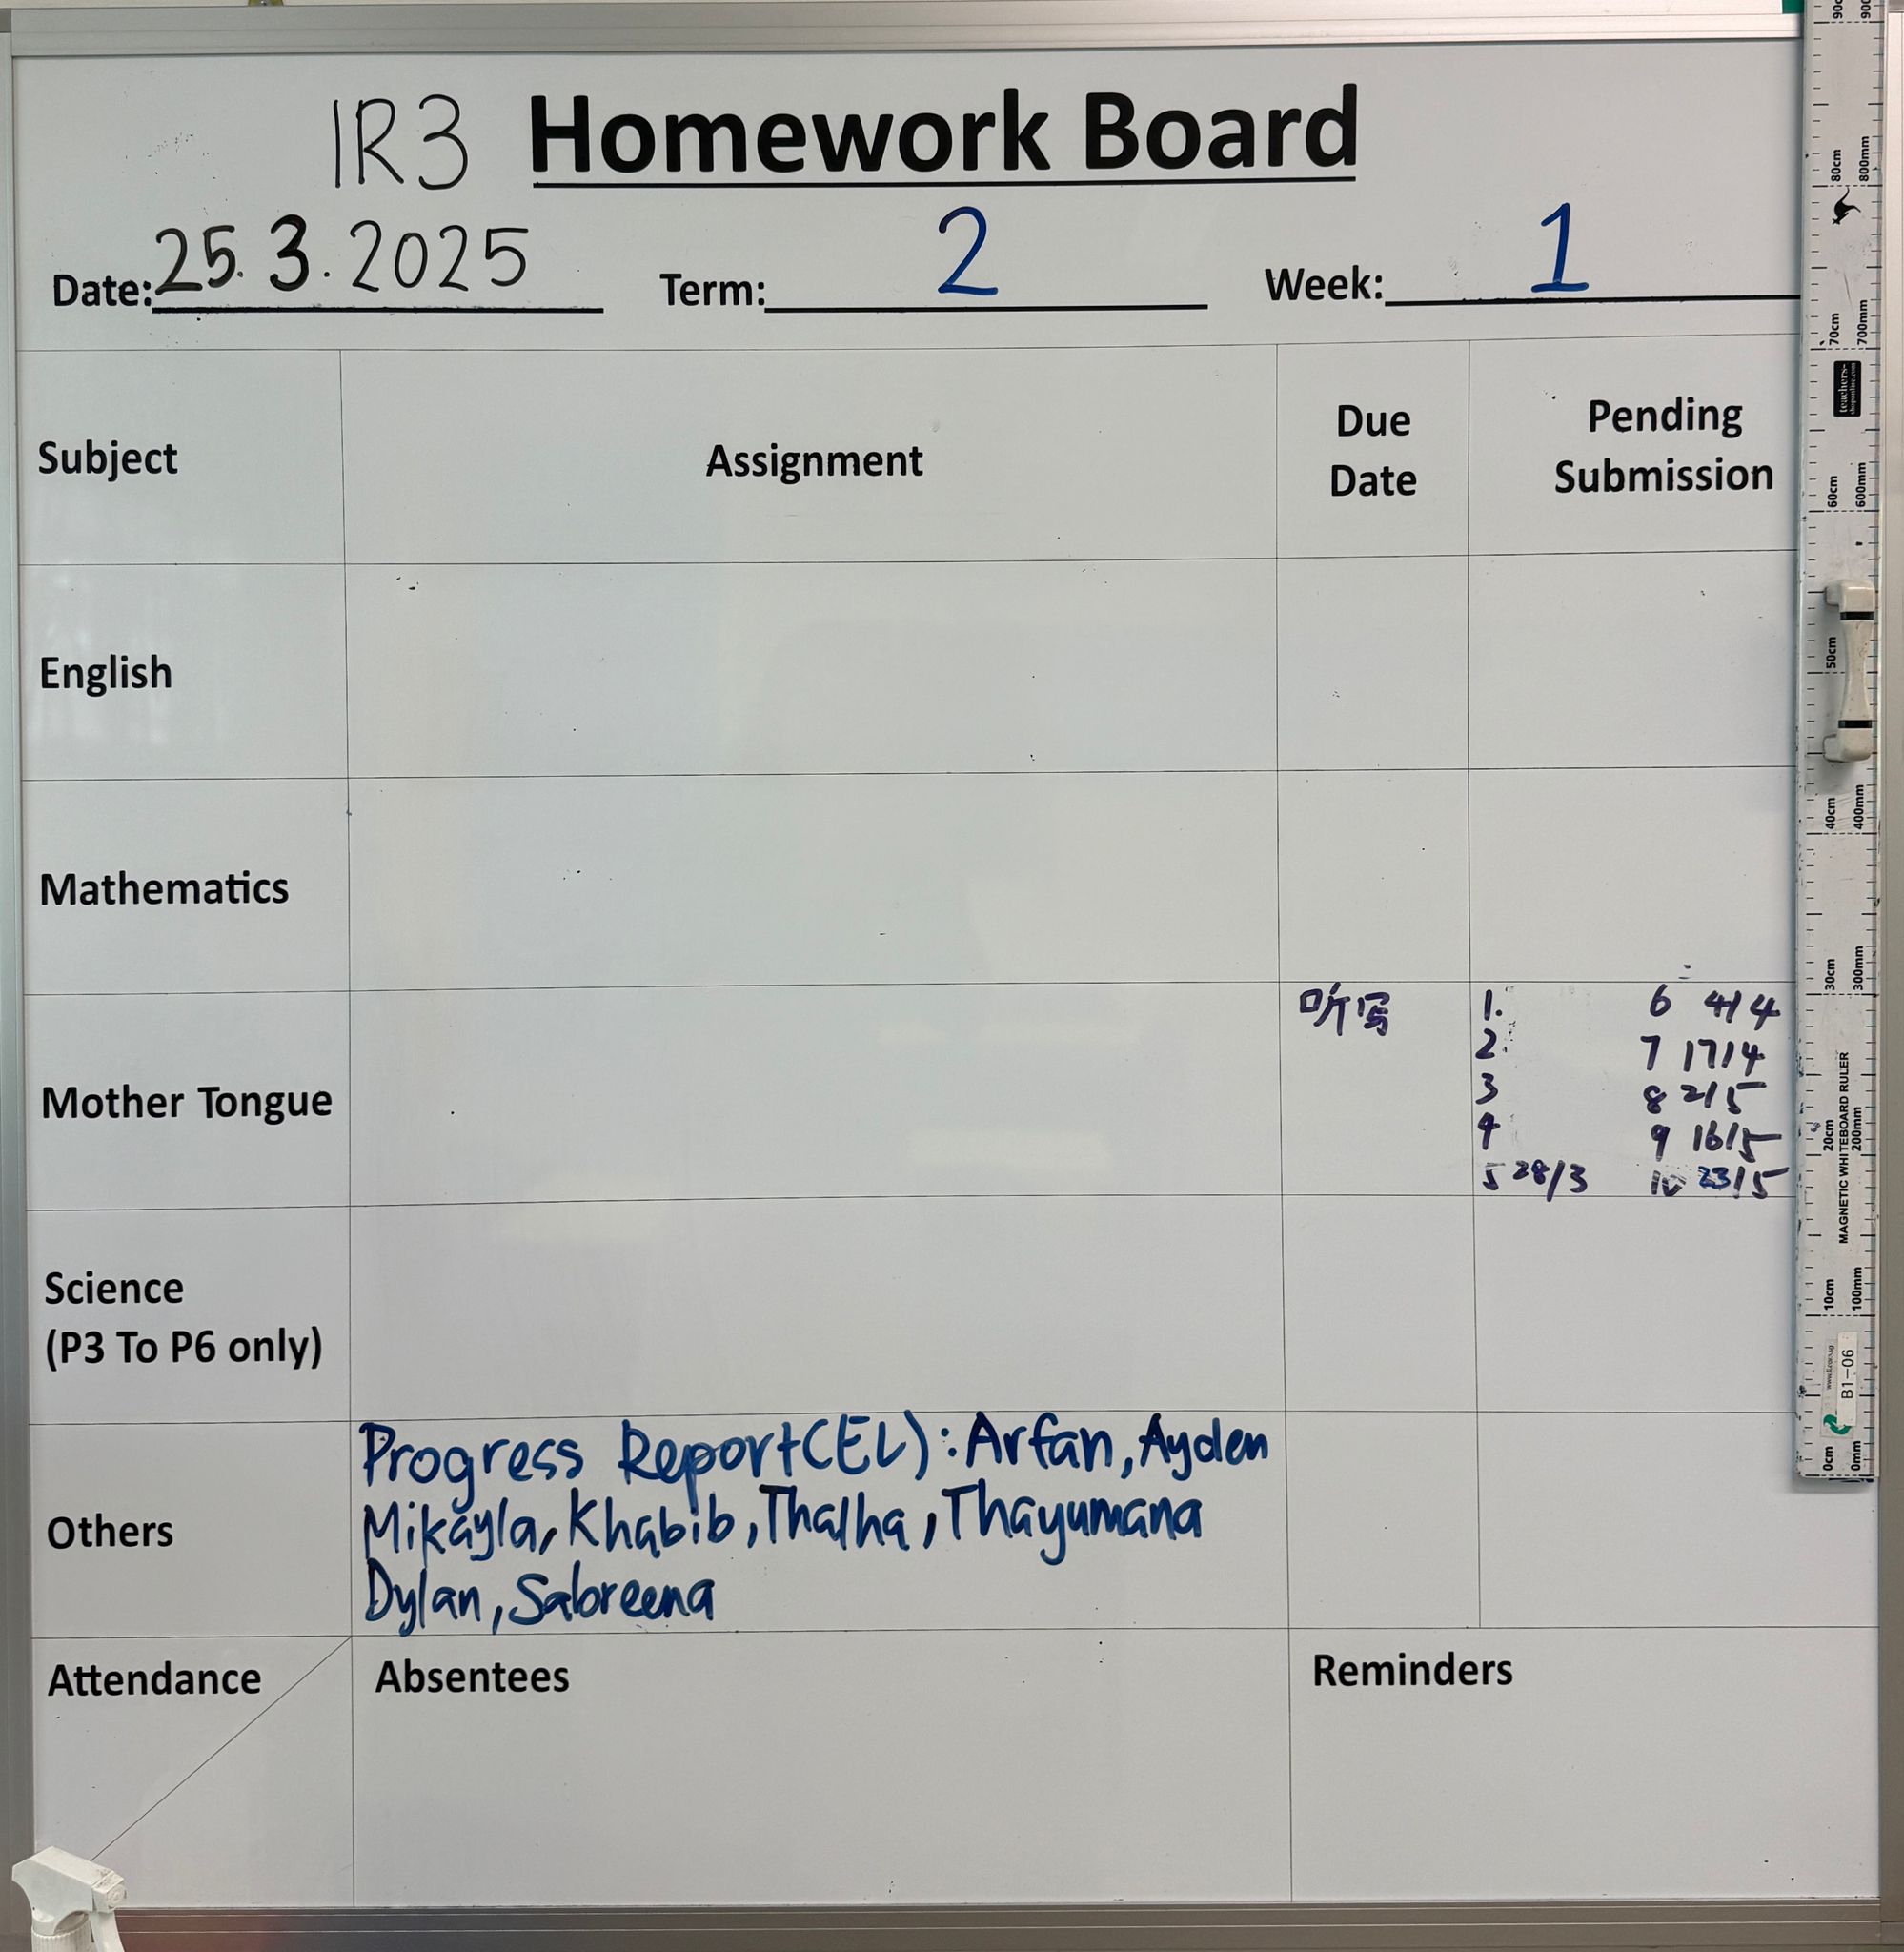 IR3 Homework Board
Date: 25.3.2025 Term: 2 Week: 1
Subject
Assignment
Due
Date
Pending
Submission
English
Mathematics
Mother Tongue
听写
1. 6 4/4
2. 7 17/4
3 8 2/5
4 9 16/5
5 28/3 10 23/5
Science
(P3 To P6 only)
Others
Progress Report(EL): Arfan, Ayden
Mikayla, Khabib, Thalha, Thayumana
Dylan, Sabreena
Attendance
Absentees
Reminders
90cm
80cm 800mm
70cm 700mm
teachers-
60cm 600mm
50cm
40cm 400mm
30cm 300mm
20cm 200mm
MAGNETIC WHITEBOARD RULER
10cm 100mm
B1-06
0cm 0mm